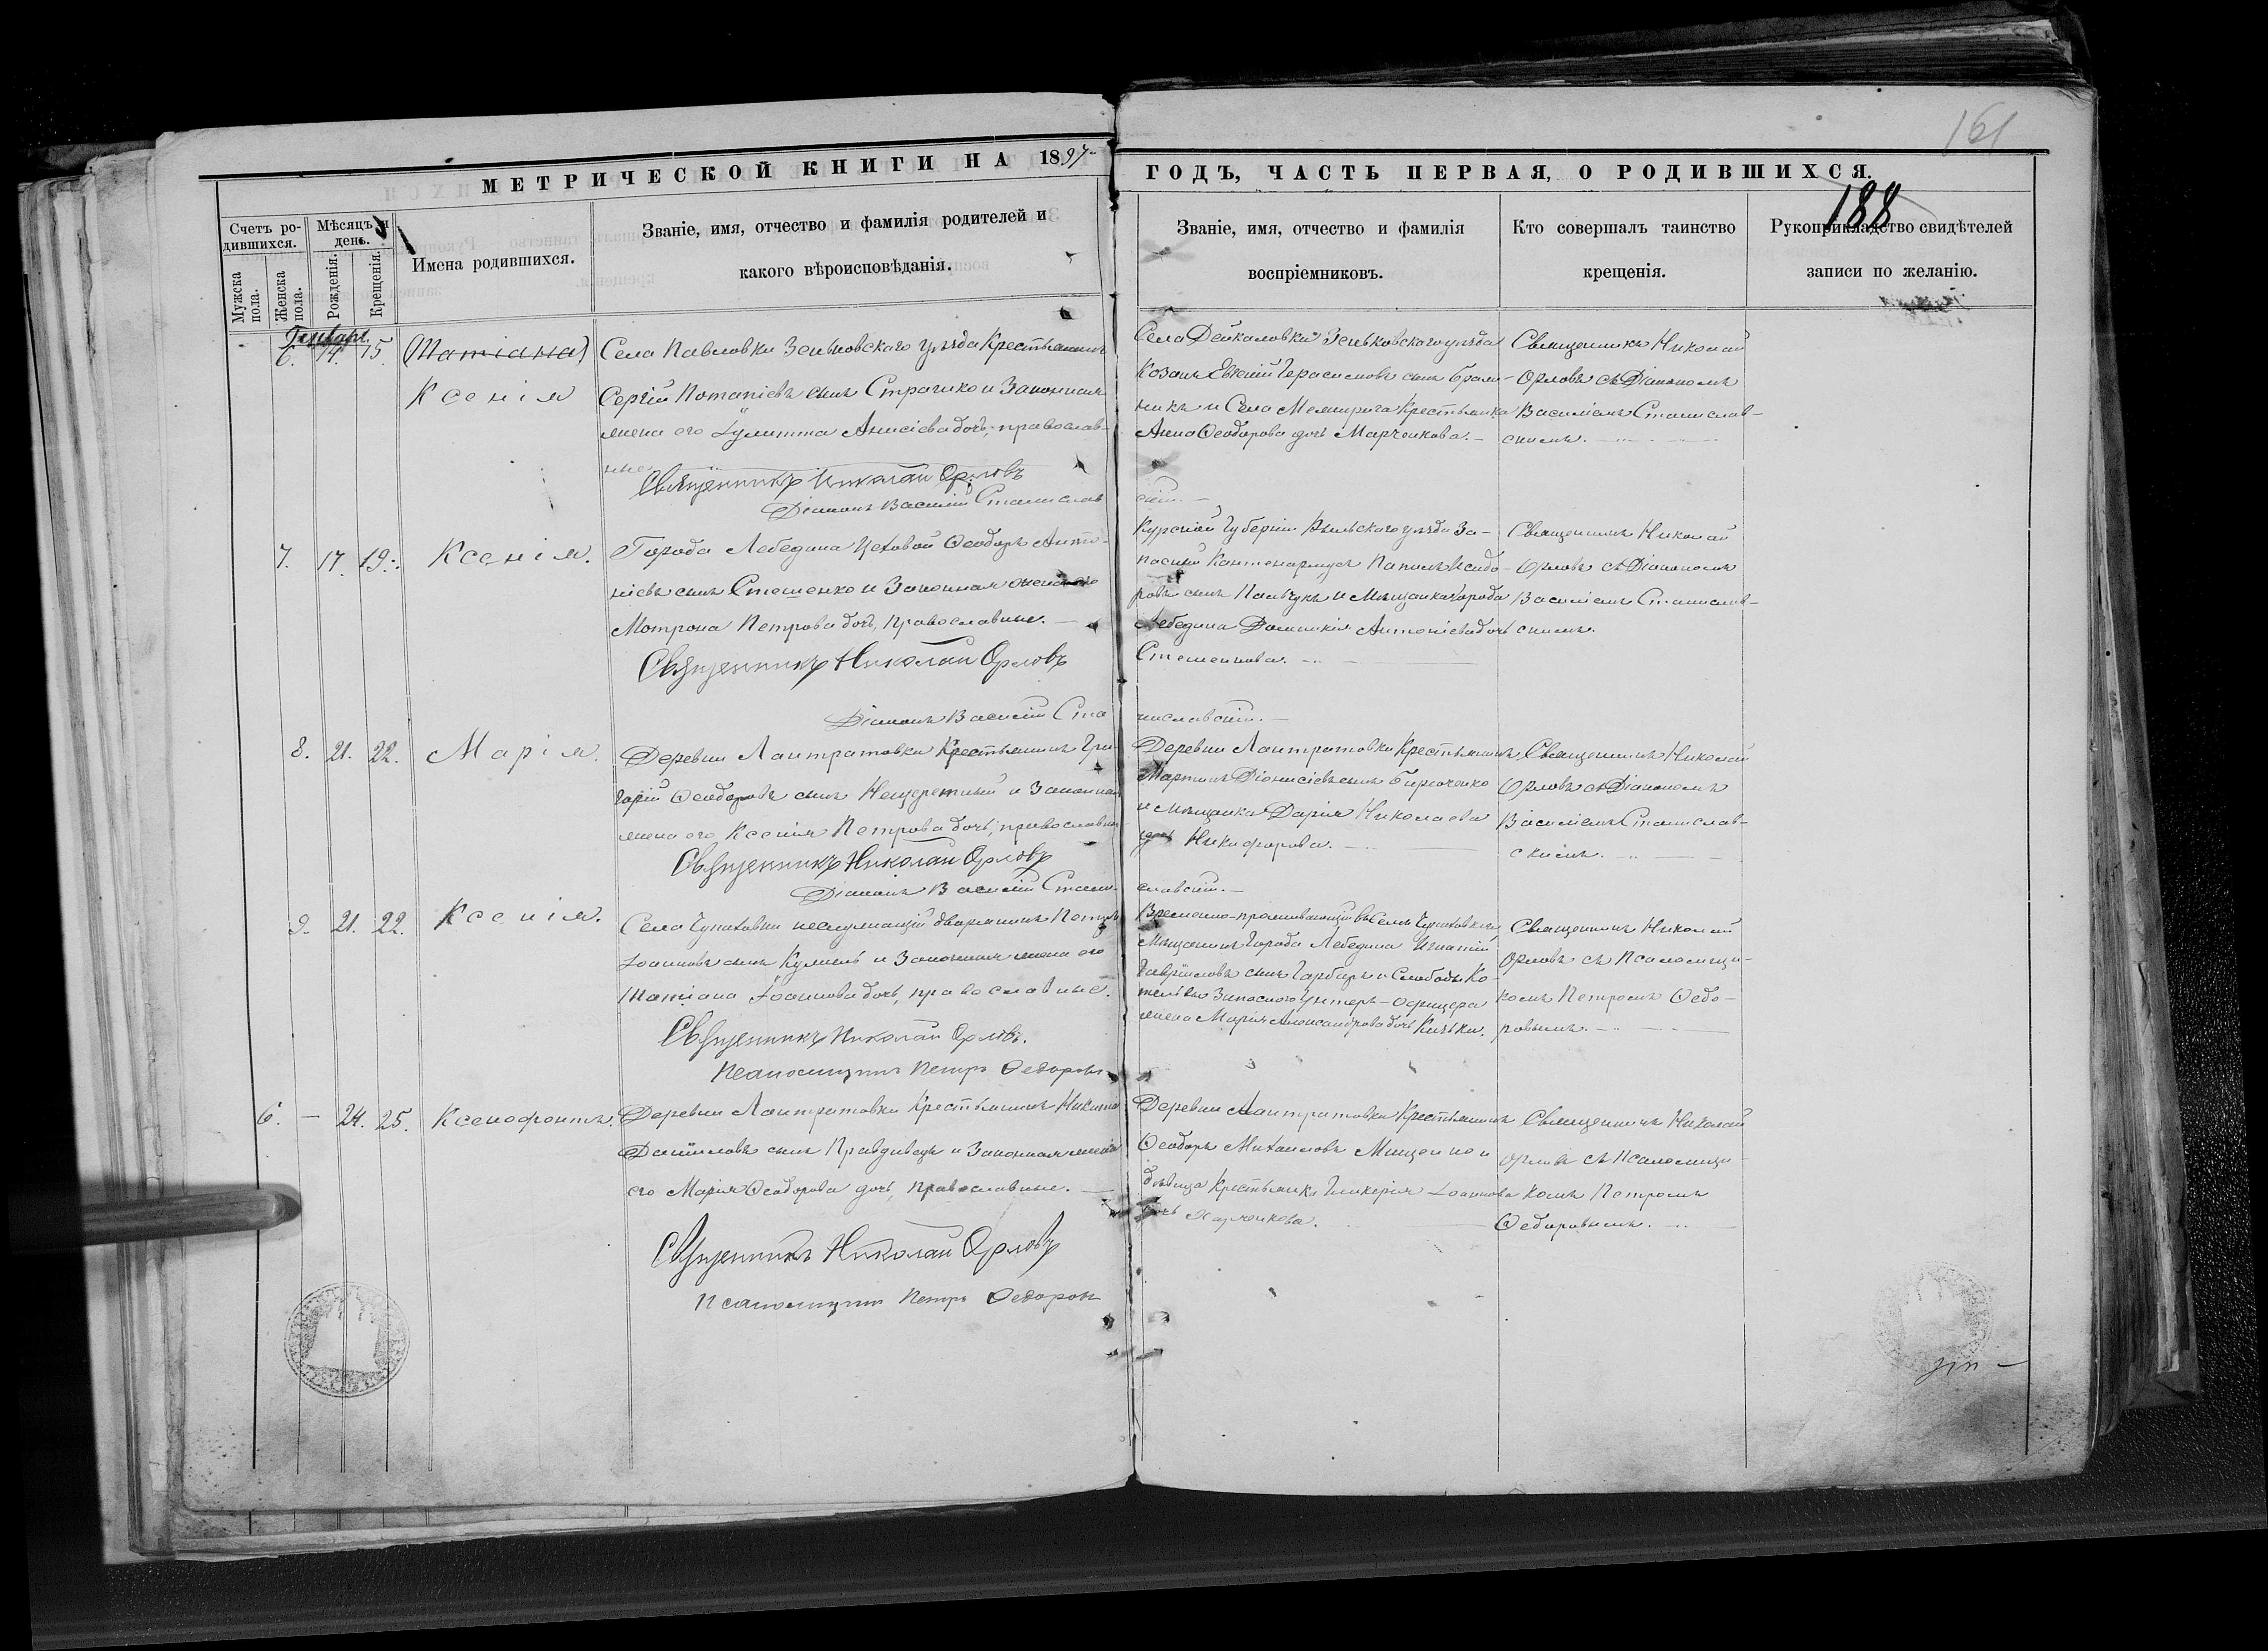 161
МЕТРИЧЕСКОЙ КНИГИ НА 1897
ГОДЪ, ЧАСТЬ ПЕРВАЯ, О РОДИВШИХСЯ.
188
Счетъ ро-
дившихся.
Мужска
пола.
Женска
пола.
Мѣсяцъ и
день.
Рожденія.
Крещенія.
Имена родившихся.
Званіе, имя, отчество и фамилія родителей и
какого вѣроисповѣданія.
Званіе, имя, отчество и фамилія
воспріемниковъ.
Кто совершалъ таинство
крещенія.
Рукоприкладство свидѣтелей
записи по желанію.
Генварь.
6. 14. 15. (Татіана)
Ксенія
Села Павловки Зеньковскаго уѣзда Крестьянинъ
Сергій Потапіевъ сынъ Строчико и Законная
жена его Іулитта Анисіева дочь, православ-
ные
Священникъ Николай Орловъ
Діаконъ Василій Станислав
скій. —
Села Дейкаловки Зеньковскаго уѣзда
Козакъ Евѳимій Герасимовъ сынъ
и Села Крестьянка
Анна Ѳеодорова дочь Марченкова. —
Священникъ Николай
Орловъ съ Діакономъ
Василіемъ Станислав-
скимъ.
7. 17. 19. Ксенія.
Города Лебедина Цеховой Ѳеодоръ Анто-
ніевъ сынъ Стешенко и Законная жена его
Мотрона Петрова дочь, православные. —
Священникъ Николай Орловъ
Діаконъ Василій Ста
ниславскій. —
Курской Губерніи Рыльскаго уѣзда За-
пасный Исидо-
ровъ сынъ и Мѣщанка Города
Лебедина Домникія Антоніева дочь
Стешенкова. —
Священникъ Николай
Орловъ съ Діакономъ
Василіемъ Станислав-
скимъ.
8. 21. 22. Марія.
Деревни Лантратовки Крестьянинъ Гри-
горій Ѳеодоровъ сынъ Нещеретный и Законная
жена его Ксенія Петрова дочь, православные
Священникъ Николай Орловъ
Діаконъ Василій Стани-
славскій. —
Деревни Лантратовки Крестьянинъ
Мартинъ Діонисіевъ сынъ
и Мѣщанка Дарія Николаева
дочь Никифорова. —
Священникъ Николай
Орловъ съ Діакономъ
Василіемъ Станислав-
скимъ.
9. 21. 22. Ксенія.
Села Чупаховки неслужащій дворянинъ Петръ
Іоанновъ сынъ и Законная жена его
Татіана Іоаннова дочь, православные.
Священникъ Николай Орловъ.
Псаломщикъ Петръ Ѳедоровъ
Временно-проживающій въ Селѣ Чупаховкѣ
Мѣщанинъ Города Лебедина Игнатій
Гавріиловъ сынъ Гарбарь и Слободы Ко-
тельвы Запаснаго Унтеръ-Офицера
жена Марія Александрова дочь
Священникъ Николай
Орловъ съ Псаломщи-
комъ Петромъ Ѳедо-
ровымъ. —
6. — 24. 25. Ксенофонтъ.
Деревни Лантратовки Крестьянинъ Никита
Даніиловъ сынъ Правдивецъ и Законная жена
его Марія Ѳеодорова дочь, православные. —
Священникъ Николай Орловъ
Псаломщикъ Петръ Ѳедоровъ
Деревни Лантратовки Крестьянинъ
Ѳеодоръ Михаиловъ Мищенко и
дѣвица Крестьянка Гликерія Іоаннова
дочь Харченкова.
Священникъ Николай
Орловъ съ Псаломщи-
комъ Петромъ
Ѳедоровымъ. —